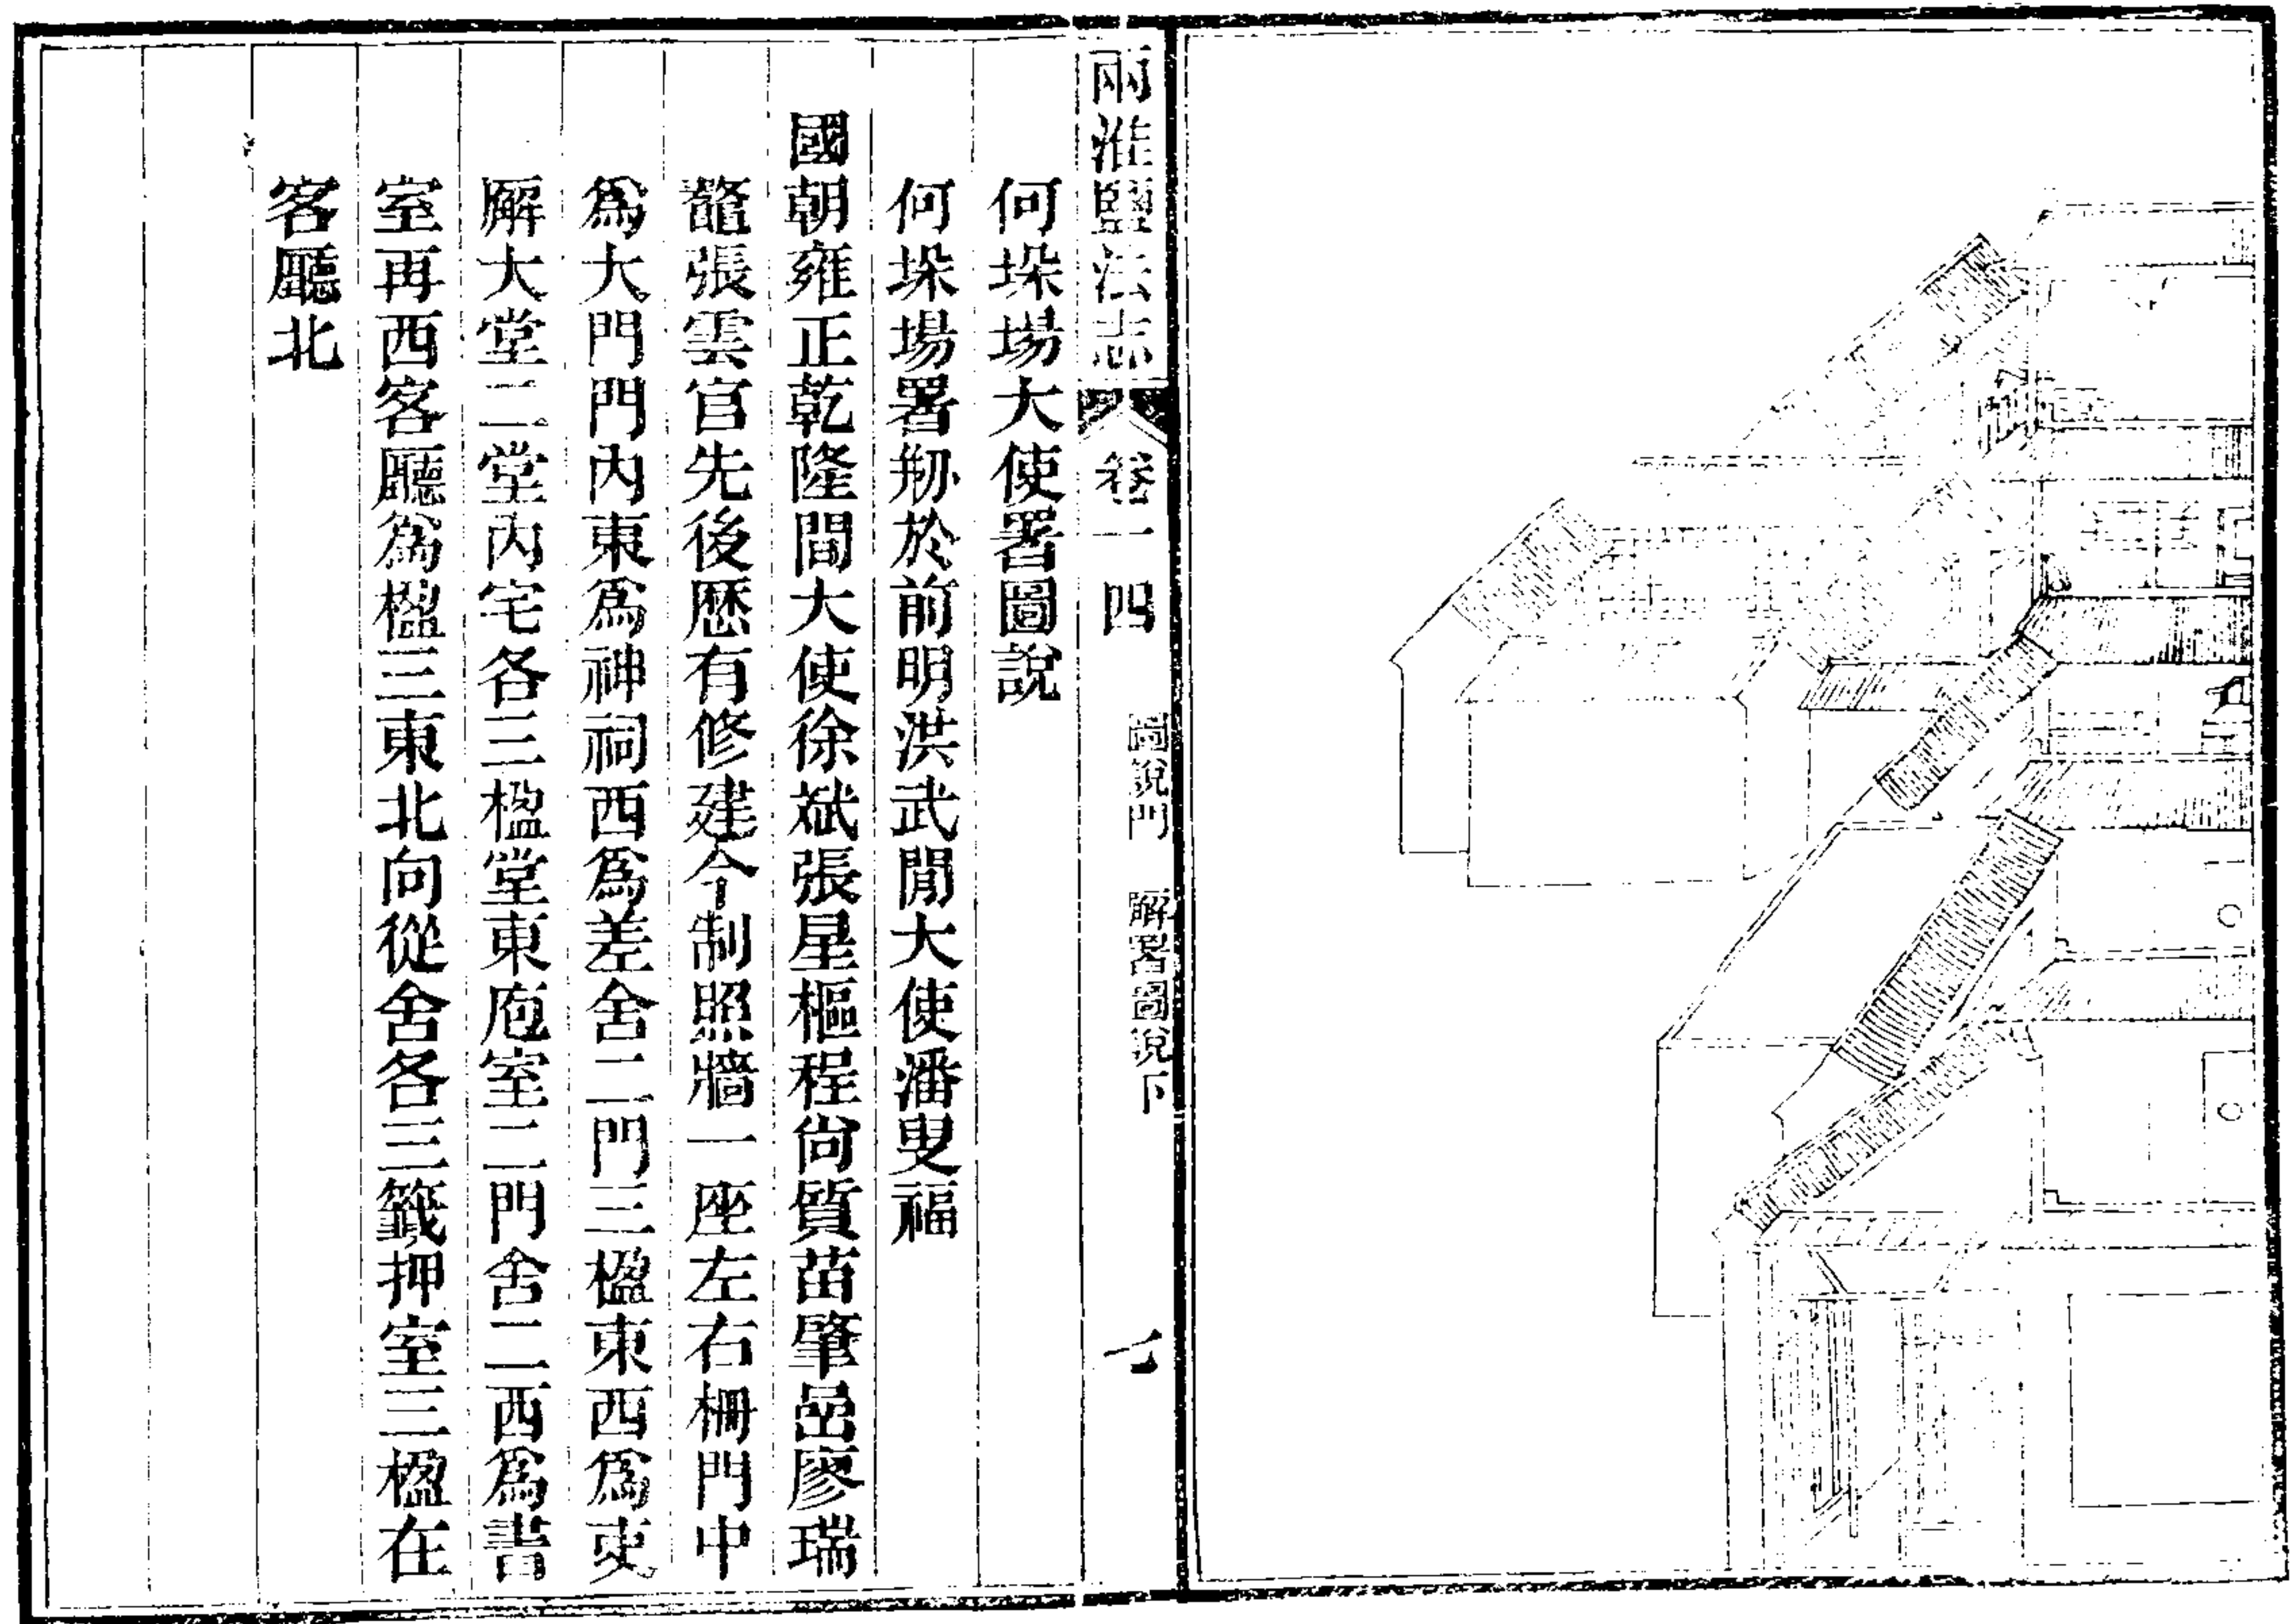 兩淮鹽法志 卷一四 圖說門 廨署圖說下 七
何垜場大使署圖說
何垜場署剏於前明洪武閒大使潘叟福
國朝雍正乾隆間大使徐斌張星樞程尙質苗肇嵒廖瑞
鼇張雲官先後歷有修建今制照牆一座左右柵門中
爲大門門內東爲神祠西爲差舍二門三楹東西爲吏
廨大堂二堂內宅各三楹堂東庖室二門舍二西爲書
室再西客廳爲楹三東北向從舍各三籤押室三楹在
客廳北